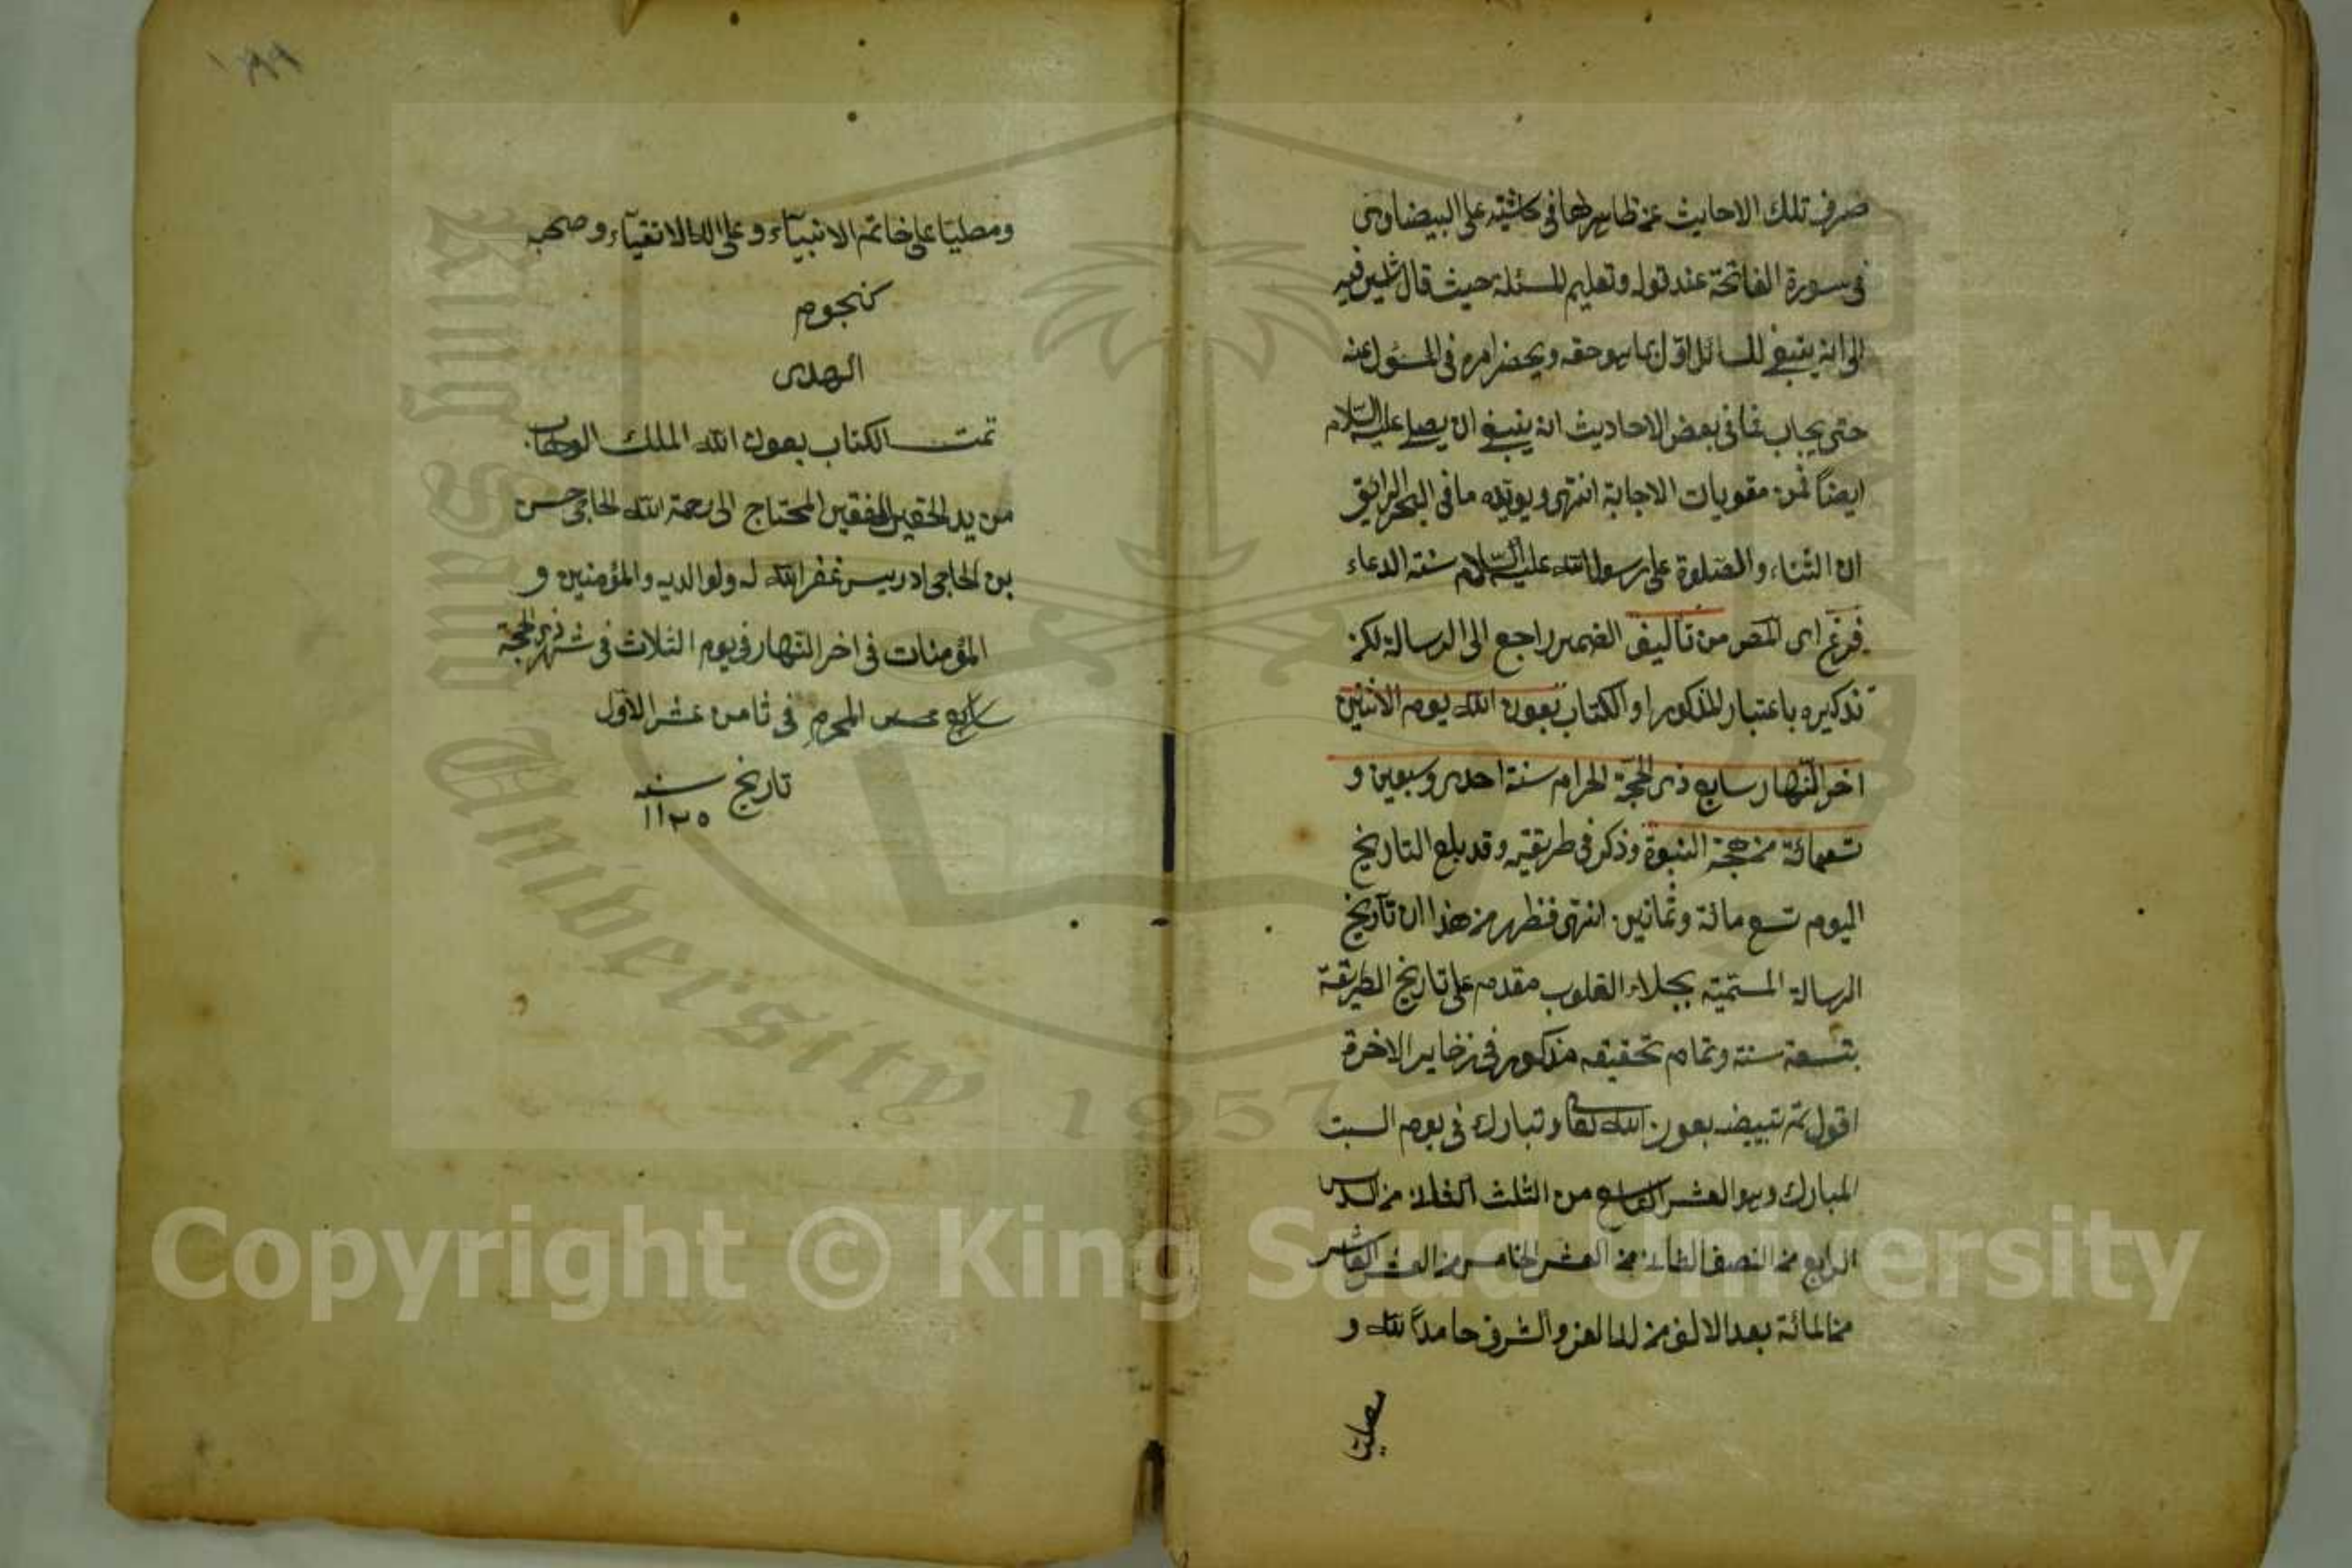 صرف تلك الاحاديث عن ظاهرها في حاشيته على البيضاوى
فى سورة الفاتحة عند قوله وتعليم المسئلة حيث قال يشير فيه
الى انه ينبغي للسائل اولا بما هو حقه ويحضر امره فى المسؤل عنه
حتى يجاب فما فى بعض الاحاديث انه ينبغي ان يصلى عليه السّلام
ايضاً فمن مقويات الاجابة انتهى ويؤيّده ما فى البحر الرايق
ان الثناء والصلوة على رسول الله عليه السّلام سنة الدعاء
فرغ اى المص من تأليف الضمير راجع الى الرسالة لكن
تذكيره باعتبار المذكور او الكتاب بعون الله يوم الاثنين
اخر النّهار سابع ذى الحجّة الحرام سنة احدى وسبعين و
تسعمائة من هجة النبوة وذكر فى طريقيه وقد بلغ التاريخ
اليوم تسع مائة وثمانين انتهى فظهر من هذا ان تآريخ
الرسالة المستمية بجلاء القلوب مقدم على تاريخ الطريقة
بتسعة سنة وتمام تحقيقه مذكور فى زخاير الاخرة
اقول تم تبييضه بعون الله تعا وتبارك فى يوم السبت
المبارك وهو العشر من الثلث من السدس
الرابع من النصف الثانى من العشر الخامس من العشر العاشر
من المائة بعد الالف من له العز والشرف حامداً لله و
مصليّا
ومصليّا على خاتم الانبيآء وعلى اله الاتقيآء وصحبه
كنجوم
الهدى
تمت الكتاب بعون الله الملك الوهاب
من يد الحقير الفقير المحتاج الى رحمة الله الحاجى حسن
بن الحاجى ادريس غفر الله له ولوالديه والمؤمنين و
المؤمنات فى اخر النّهار فى يوم الثلاث فى شهر ذى الحجة
المحرم فى ثامن عشر الاوّل
تاريخ سنه
١١٢٥
Copyright © King Saud University
King Saud University
1957